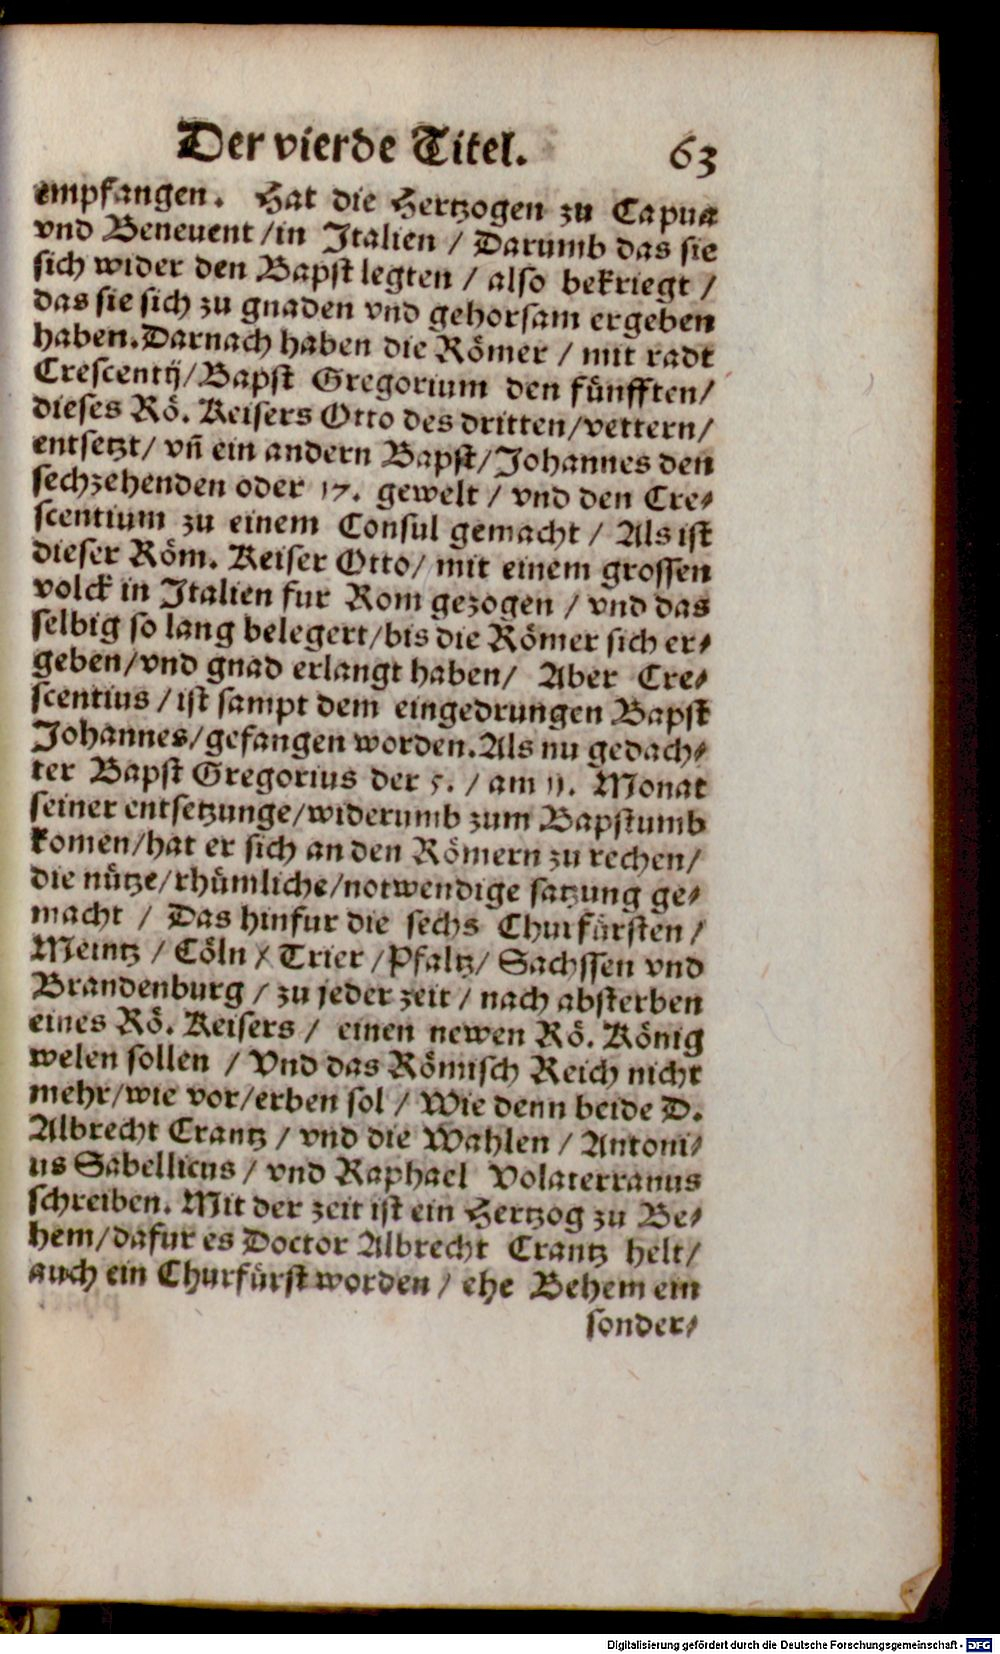 Der vierde Titel. 63
empfangen. Hat die Hertzogen zu Capua
vnd Beneuent /in Italien / Darumb das sie
sich wider den Bapst legten / also bekriegt /
das sie sich zu gnaden vnd gehorsam ergeben
haben. Darnach haben die Römer / mit radt
Crescentij/Bapst Gregorium den fünfften/
dieses Rö. Keisers Otto des dritten/vettern/
entsetzt/ vñ ein andern Bapst/Johannes den
sechzehenden oder 17. gewelt / vnd den Cre⸗
scentium zu einem Consul gemacht / Als ist
dieser Röm. Keiser Otto/ mit einem grossen
volck in Italien fur Rom gezogen / vnd das
selbig so lang belegert/bis die Römer sich er⸗
geben/vnd gnad erlangt haben/ Aber Cre⸗
scentius / ist sampt dem eingedrungen Bapst
Johannes/gefangen worden. Als nu gedach⸗
ter Bapst Gregorius der 5. / am 11. Monat
seiner entsetzunge/widerumb zum Bapstumb
komen/hat er sich an den Römern zu rechen/
die nütze/rhümliche/notwendige satzung ge⸗
macht / Das hinfur die sechs Churfürsten /
Meintz / Cöln / Trier /Pfaltz/ Sachssen vnd
Brandenburg / zu jeder zeit / nach absterben
eines Rö. Keisers / einen newen Rö. König
welen sollen / Vnd das Römisch Reich nicht
mehr/wie vor/erben sol / Wie denn beide D.
Albrecht Crantz / vnd die Wahlen / Antoni⸗
us Sabellicus / vnd Raphael Volaterranus
schreiben. Mit der zeit ist ein Hertzog zu Be⸗
hem/dafur es Doctor Albrecht Crantz helt/
auch ein Churfürst worden / ehe Behem ein
sonder⸗
Digitalisierung gefördert durch die Deutsche Forschungsgemeinschaft - DFG